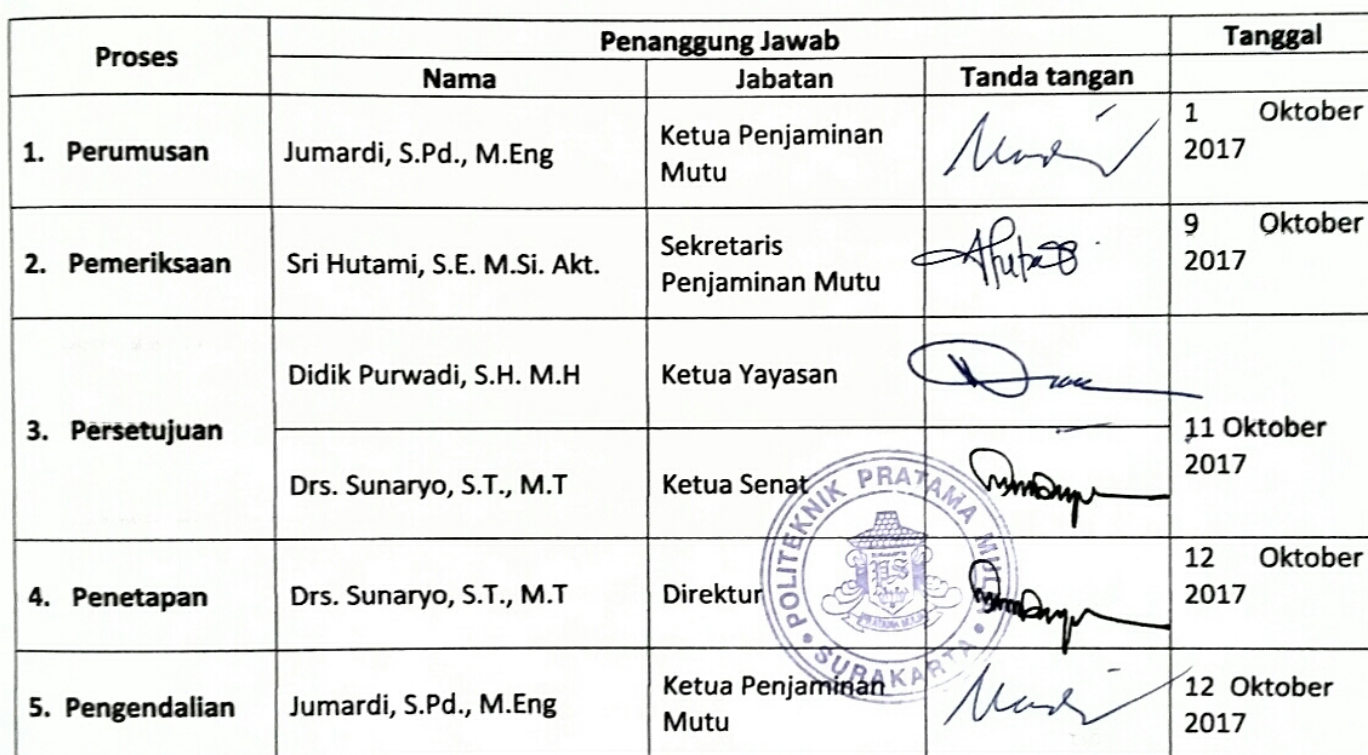 Proses
Penanggung Jawab
Tanggal
Nama
Jabatan
Tanda tangan
1. Perumusan
Jumardi, S.Pd., M.Eng
Ketua Penjaminan
Mutu
1 Oktober
2017
2. Pemeriksaan
Sri Hutami, S.E. M.Si. Akt.
Sekretaris
Penjaminan Mutu
9 Oktober
2017
3. Persetujuan
Didik Purwadi, S.H. M.H
Ketua Yayasan
Drs. Sunaryo, S.T., M.T
Ketua Senat
11 Oktober
2017
4. Penetapan
Drs. Sunaryo, S.T., M.T
Direktur
12 Oktober
2017
5. Pengendalian
Jumardi, S.Pd., M.Eng
Ketua Penjaminan
Mutu
12 Oktober
2017
POLITEKNIK PRATAMA
SURAKARTA